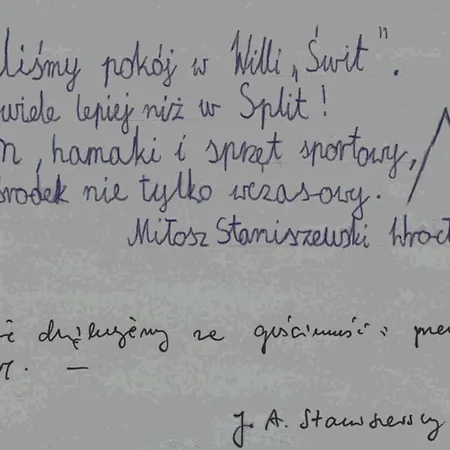 liśmy pokój w Willi „Świt".
wiele lepiej niż w Split!
n, hamaki i sprzęt sportowy,
środek nie tylko wczasowy.
Miłosz Staniszewski Wrocł
dziękujemy za gościnność i
J. A. Staniszewscy